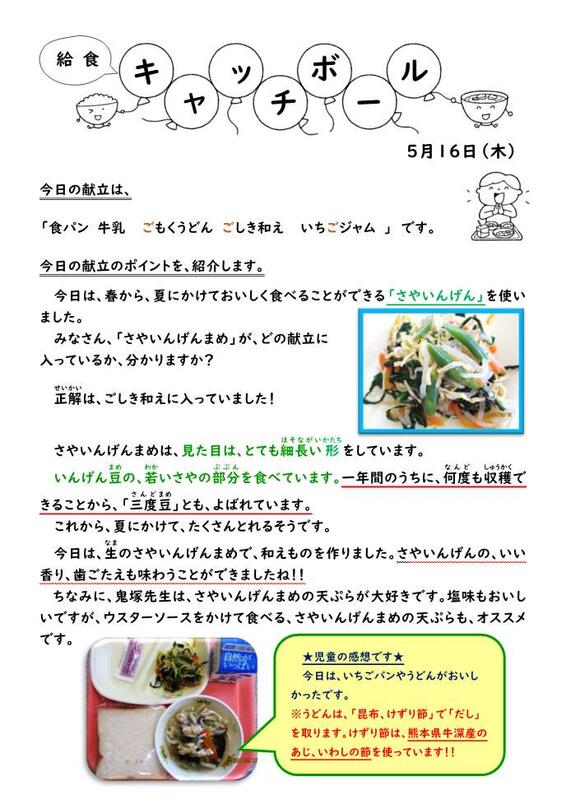 給食
キャッチボール
５月１６日（木）
今日の献立は、
「食パン　牛乳　ごもくうどん　ごしき和え　いちごジャム　」　です。
今日の献立のポイントを、紹介します。
今日は、春から、夏にかけておいしく食べることができる「さやいんげん」を使い
ました。
みなさん、「さやいんげんまめ」が、どの献立に
入っているか、分かりますか？
せいかい
正解は、ごしき和えに入っていました！
ほそながいかたち
さやいんげんまめは、見た目は、とても細長い形をしています。
まめ　わか　ぶぶん　なんど　しゅうかく
いんげん豆の、若いさやの部分を食べています。一年間のうちに、何度も収穫で
さんどまめ
きることから、「三度豆」とも、よばれています。
これから、夏にかけて、たくさんとれるそうです。
なま
今日は、生のさやいんげんまめで、和えものを作りました。さやいんげんの、いい
香り、歯ごたえも味わうことができましたね！！
ちなみに、鬼塚先生は、さやいんげんまめの天ぷらが大好きです。塩味もおいし
いですが、ウスターソースをかけて食べる、さやいんげんまめの天ぷらも、オススメ
です。
自然が
いっぱい
★児童の感想です★
今日は、いちごパンやうどんがおいし
かったです。
※うどんは、「昆布、けずり節」で「だし」
を取ります。けずり節は、熊本県牛深産の
あじ、いわしの節を使っています！！